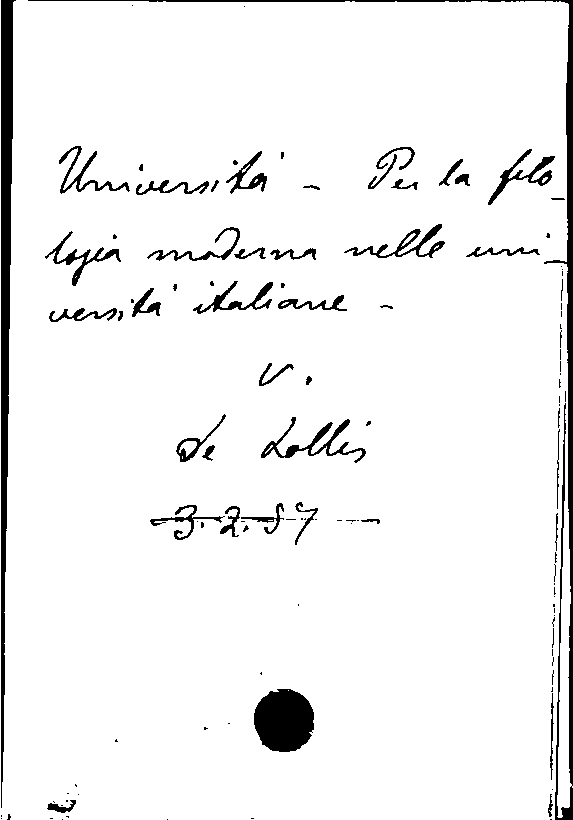 Università - Per la filo_
logia moderna nelle uni_
versità italiane -
v.
De Lollis
3.2.57